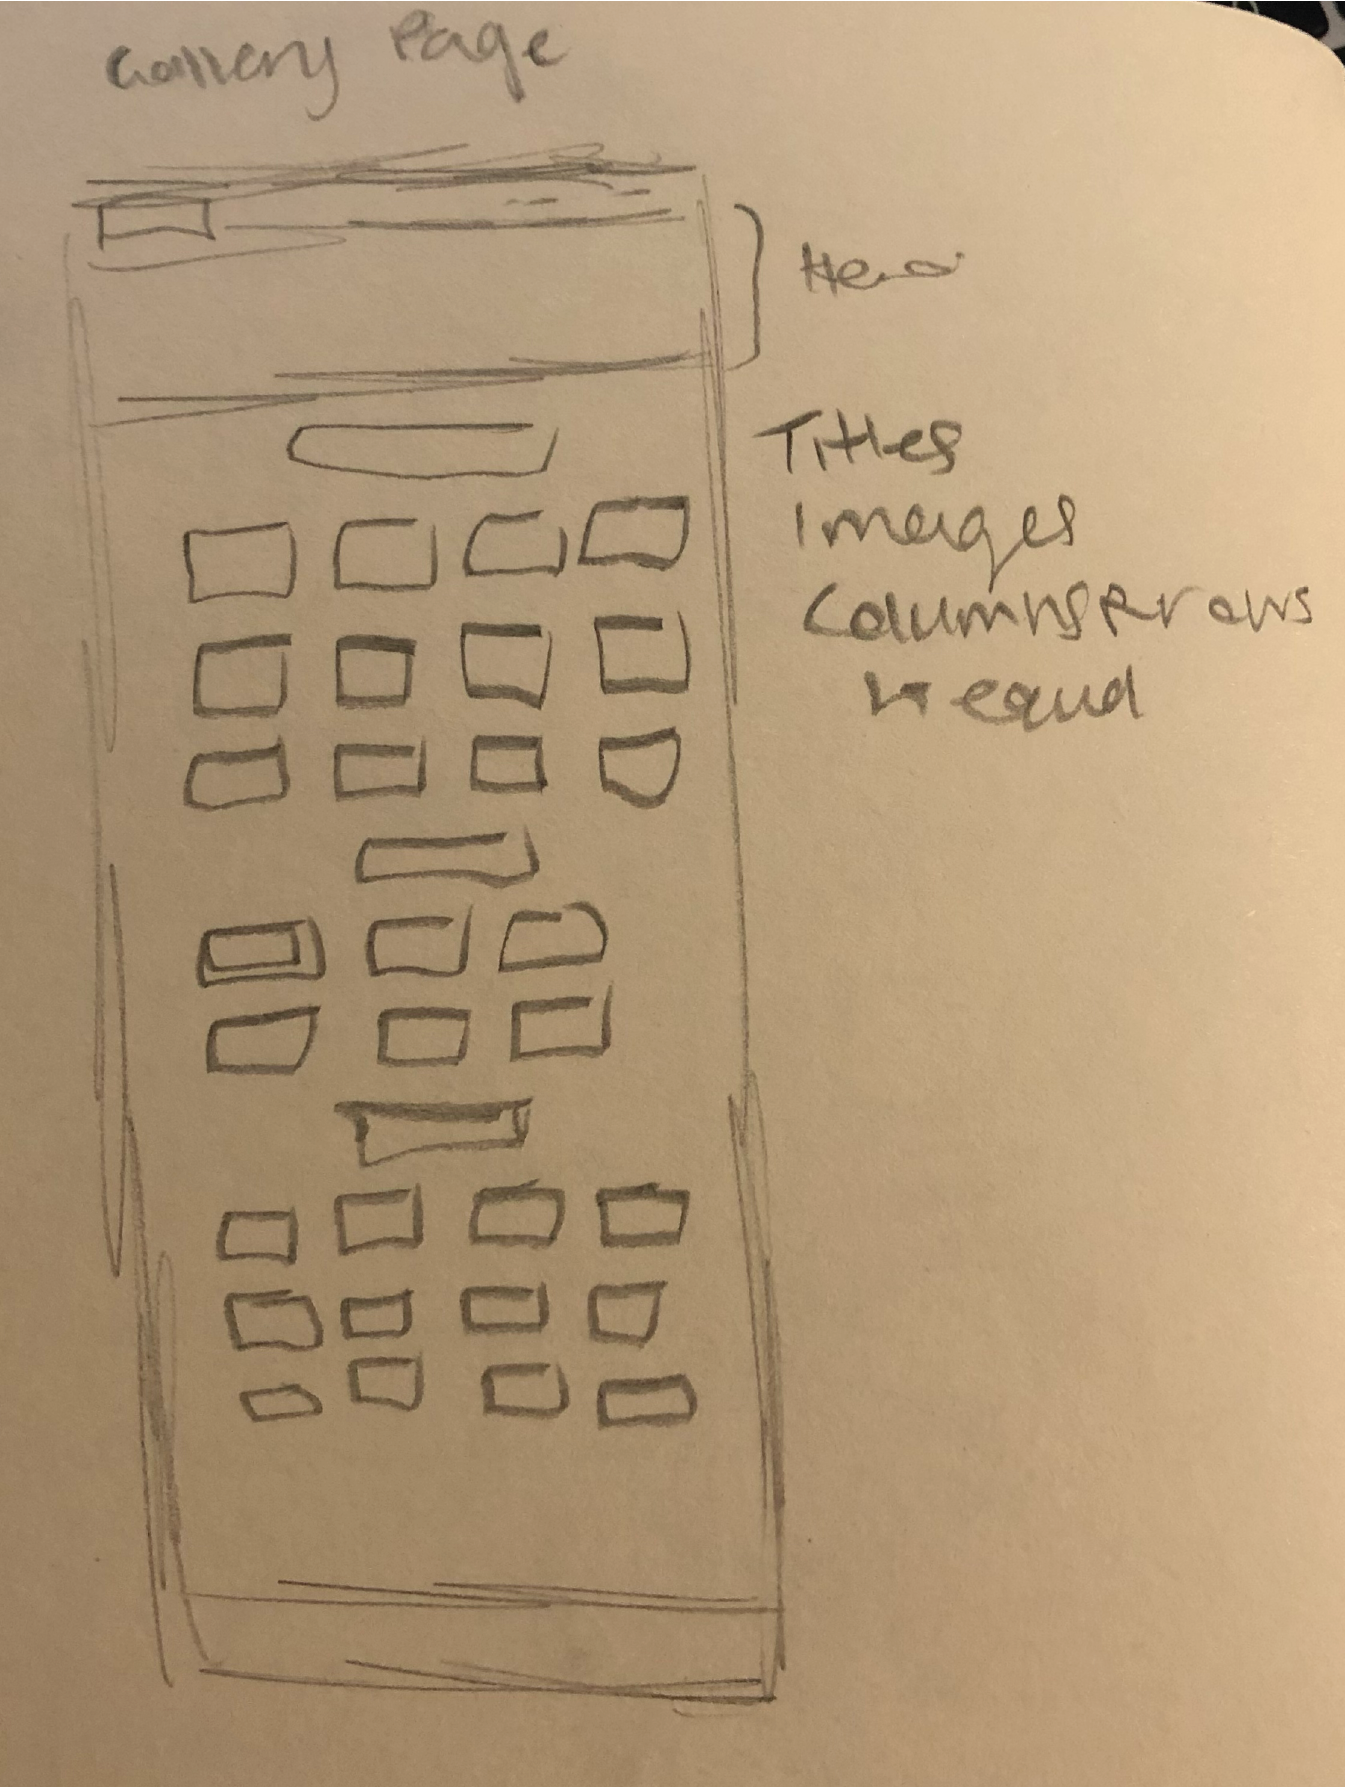 Gallery Page
Hero
Titles
Images
Columns & rows
equal